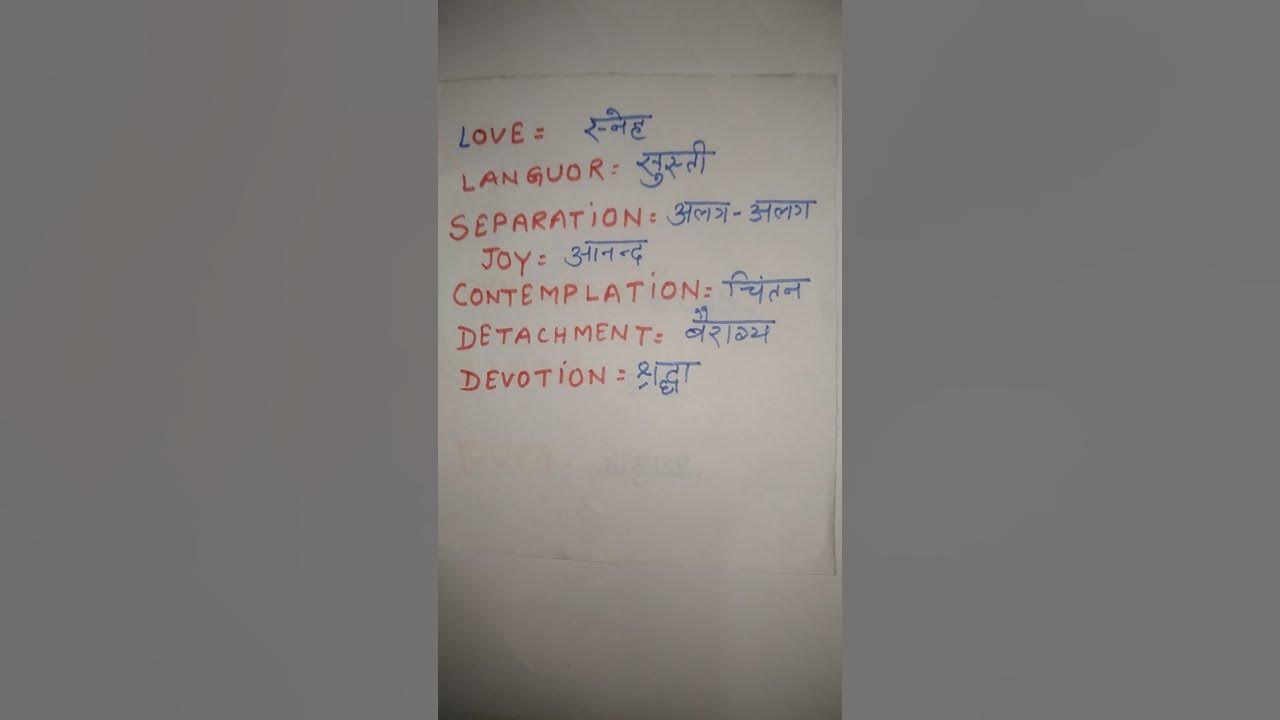 LOVE = स्नेह
LANGUOR = सुस्ती
SEPARATiON = अलग-अलग
JOY = आनन्द
CONTEMPLATiON = चिंतन
DETACHMENT = बैराग्य
DEVOTiON = श्रद्धा